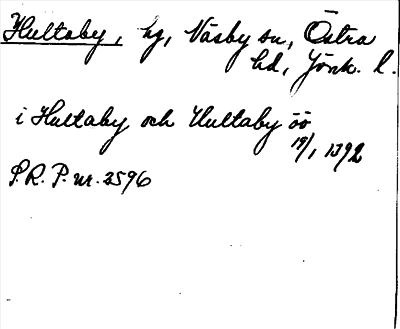 Hultaby, hg, Näsby sn, Östra
hd, Jönk. l.
i Hultaby och Hultaby öö
19/1 1392
P.R.P. nr. 2596